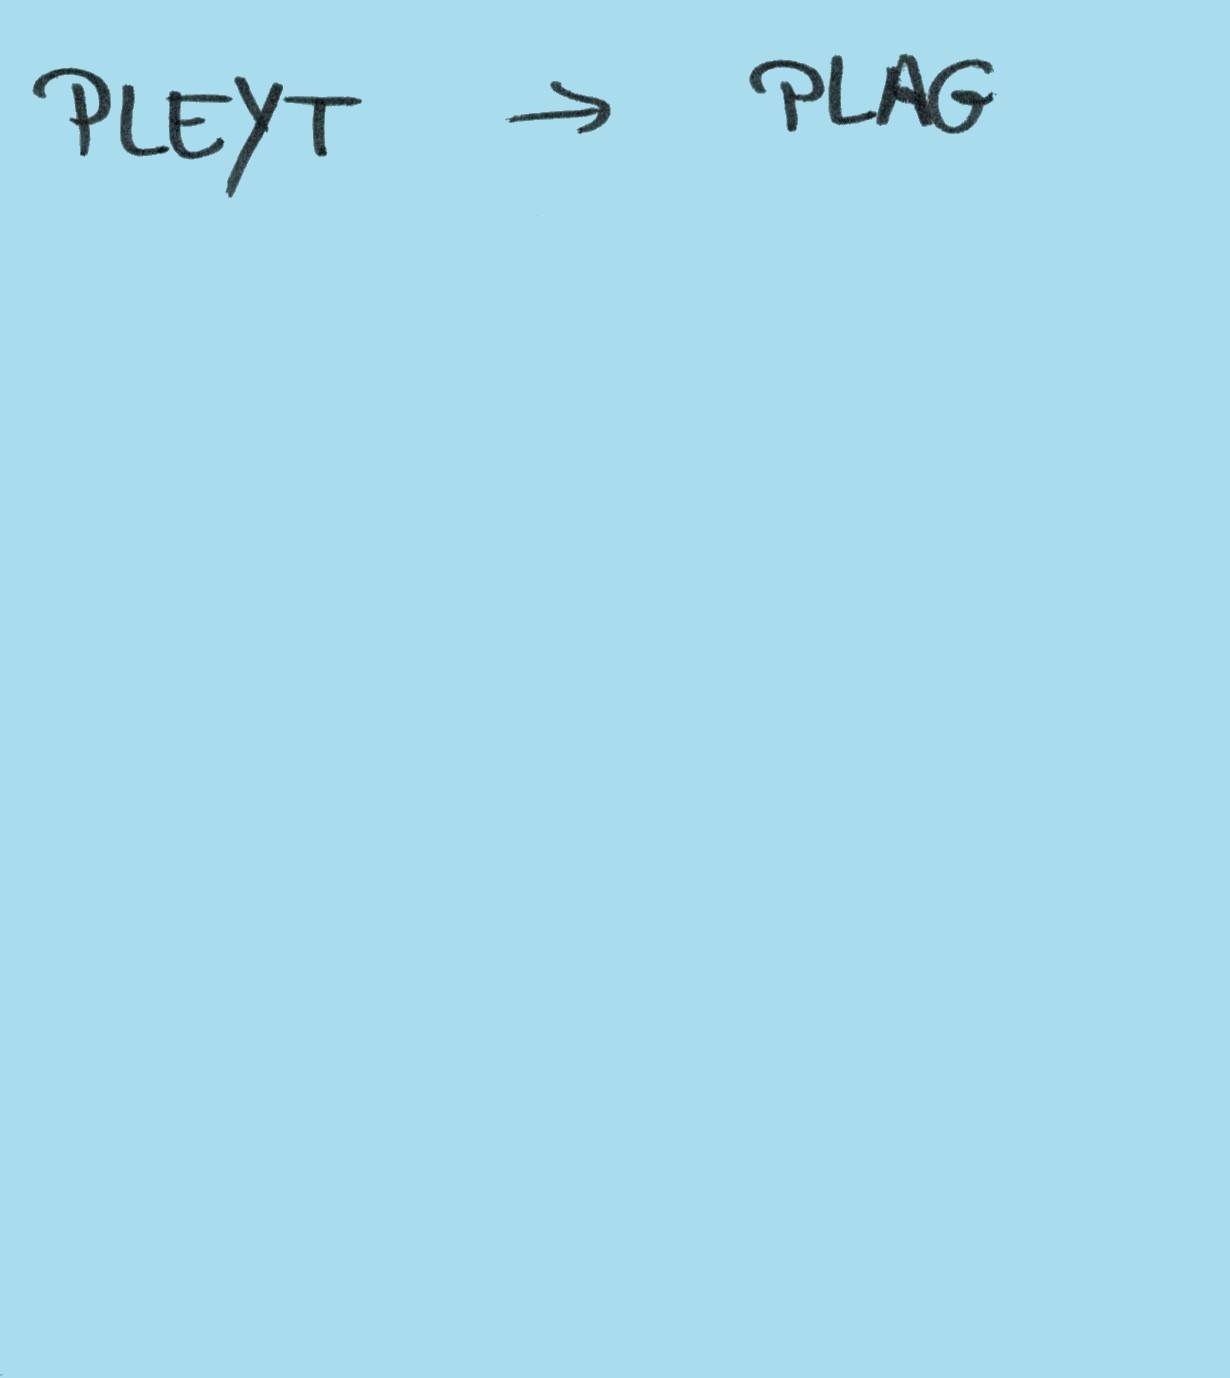 PLEYT → PLAG